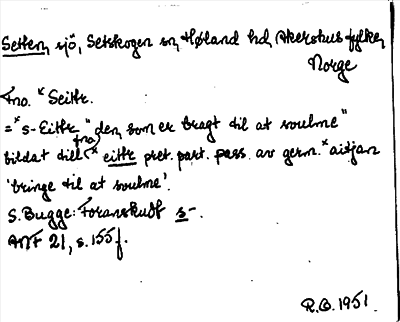 Setten, sjö, Setskogen sn, Høland hd, Akershus fylke,
Norge
Fno. *Seitr.
= *s-Eitr "den, som er bragt til at svulme"
bildat till fno. *eitr pret. part. pass. av germ. *aitjan
'bringe til at svulme'.
S. Bugge: Foranskudt s-.
ANF 21, s. 155 f.
R.O. 1951.